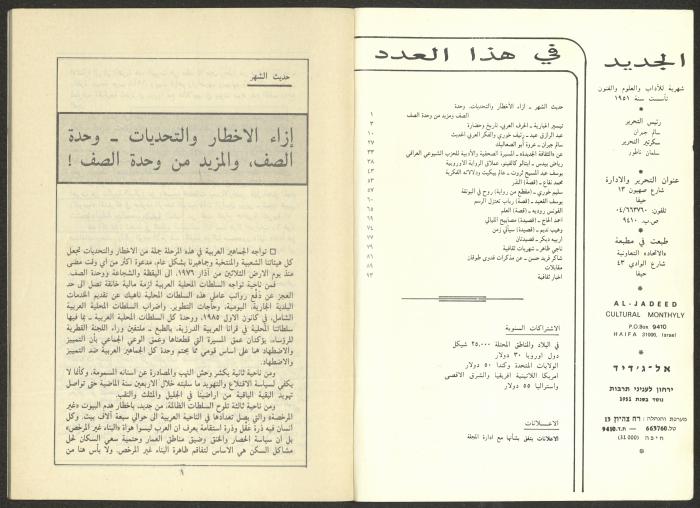 الجديد
شهرية للآداب والعلوم والفنون
تأسست سنة ١٩٥١
*
رئيس التحرير
سالم جبران
سكرتير التحرير
سلمان ناطور
*
عنوان التحرير والادارة
شارع صهيون ١٣
حيفا
تلفون: ٠٤/٦٦٣٧٦٠
ص.ب. ٩٤١٠
*
طبعت في مطبعة
«الاتحاد» التعاونية
شارع الوادي ٤٣
حيفا
*
AL-JADEED
CULTURAL MONTHYLY
P.O.Box 9410
HAIFA 31090, Israel
*
אל-ג'דיד
ירחון לעניני תרבות
נוסד בשנת 1951
מערכת והנהלה: רח צהיון 13
טל. 663760 — ת.ד. 9410
חיפה (31000)
*
في هذا العدد
حديث الشهر - ازاء الأخطار والتحديات، وحدة
الصف ومزيد من وحدة الصف ١
تيسير الخيارية - الحرف العربي، تاريخ وحضارة ٣
عبد الرازق عيد - رئيف خوري والفكر العربي الحديث ١٠
سالم جبران - عروة أبو الصعاليك ٢٧
عن «الثقافة الجديدة» - المسيرة الصحفية والأدبية للحزب الشيوعي العراقي ٣٣
رياض بيدس - ايتالو كالفينو، عملاق الرواية الاوروبية ٣٨
يوسف عبد المسيح ثروت - عالم بيكيت ودلالاته الفكرية ٤٣
محمد نفاع - (قصة) النذر ٥٢
سليم خوري - (مقطع من رواية) روح في البوتقة ٥٧
يوسف القعيد - (قصة) رباب تعتزل الرسم ٦٠
الفونس روديه - (قصة) العلم ٦٥
احمد الحاج - (قصيدة) مصابيح الليالي ٦٩
وهيب نديم - (قصيدة) سيأتي زمن ٧٤
ادريه ديكر - قصيدتان ٧٧
ناجي ظاهر - شهريات ثقافية ٧٩
شاكر فريد حسن - عن مذكرات فدوى طوقان ٨١
مقابلات ٨٩
اخبار ثقافية ٩٣
الاشتراكات السنوية
في البلاد والمناطق المحتلة ٢٥,٠٠٠ شيكل
دول اوروبا ٣٠ دولار
الولايات المتحدة وكندا ٥٠ دولار
امريكا اللاتينية افريقيا والشرق الاقصى
واستراليا ٥٥ دولار
الاعلانات
الاعلانات يتفق بشأنها مع ادارة المجلة
حديث الشهر
إزاء الاخطار والتحديات - وحدة
الصف، والمزيد من وحدة الصف !
□ تواجه الجماهير العربية في هذه المرحلة جملة من الاخطار والتحديات تجعل
كل هيئاتنا الشعبية والمنتخبة وجماهيرنا بشكل عام، مدعوة اكثر من أي وقت مضى
منذ يوم الارض الثلاثين من آذار ١٩٧٦، الى اليقظة والشجاعة ووحدة الصف.
فمن ناحية تواجه السلطات المحلية العربية ازمة مالية خانقة تصل الى حد
العجز عن دفع رواتب عاملي هذه السلطات المحلية ناهيك عن تقديم الخدمات
البلدية الجارية، اليومية، وحاجات التطوير. واضراب السلطات المحلية العربية
الشامل، في كانون الاول ١٩٨٥، ووحدة كل السلطات المحلية العربية - بما فيها
سلطاتنا المحلية في قرانا العربية الدرزية، بالطبع - ملتفين وراء اللجنة القطرية
للرؤساء، يؤكدان عمق المسيرة التي قطعناها وعمق الوعي الجماعي بأن التمييز
والاضطهاد هما على اساس قومي مما يحتم وحدة كل الجماهير العربية ضد التمييز
والاضطهاد.
ومن ناحية ثانية يكشر وحش النهب والمصادرة عن اسنانه المسمومة، وكأننا لا
يكفي لسياسة الاقتلاع والتهويد ما سلبته خلال الاربعين سنة الماضية حتى تواصل
تهويد البقية الباقية من اراضينا في الجليل والمثلث والنقب.
ومن ناحية ثالثة تلوح السلطات الظالمة، من جديد، باخطار هدم البيوت «غير
المرخصة» والتي يصل تعدادها في الناحية العربية الى حوالي سبعة آلاف بيت. وكل
انسان فيه ذرة عقل وذرة استقامة يعرف ان العرب ليسوا هواة «البناء غير المرخص»
بل أن سياسة الحصار والخنق وضيق مناطق العمار وحتمية سعي السكان لحل
مشاكل السكن هي الاساس لتفاقم ظاهرة البناء غير المرخص. ولا بأس هنا من
١